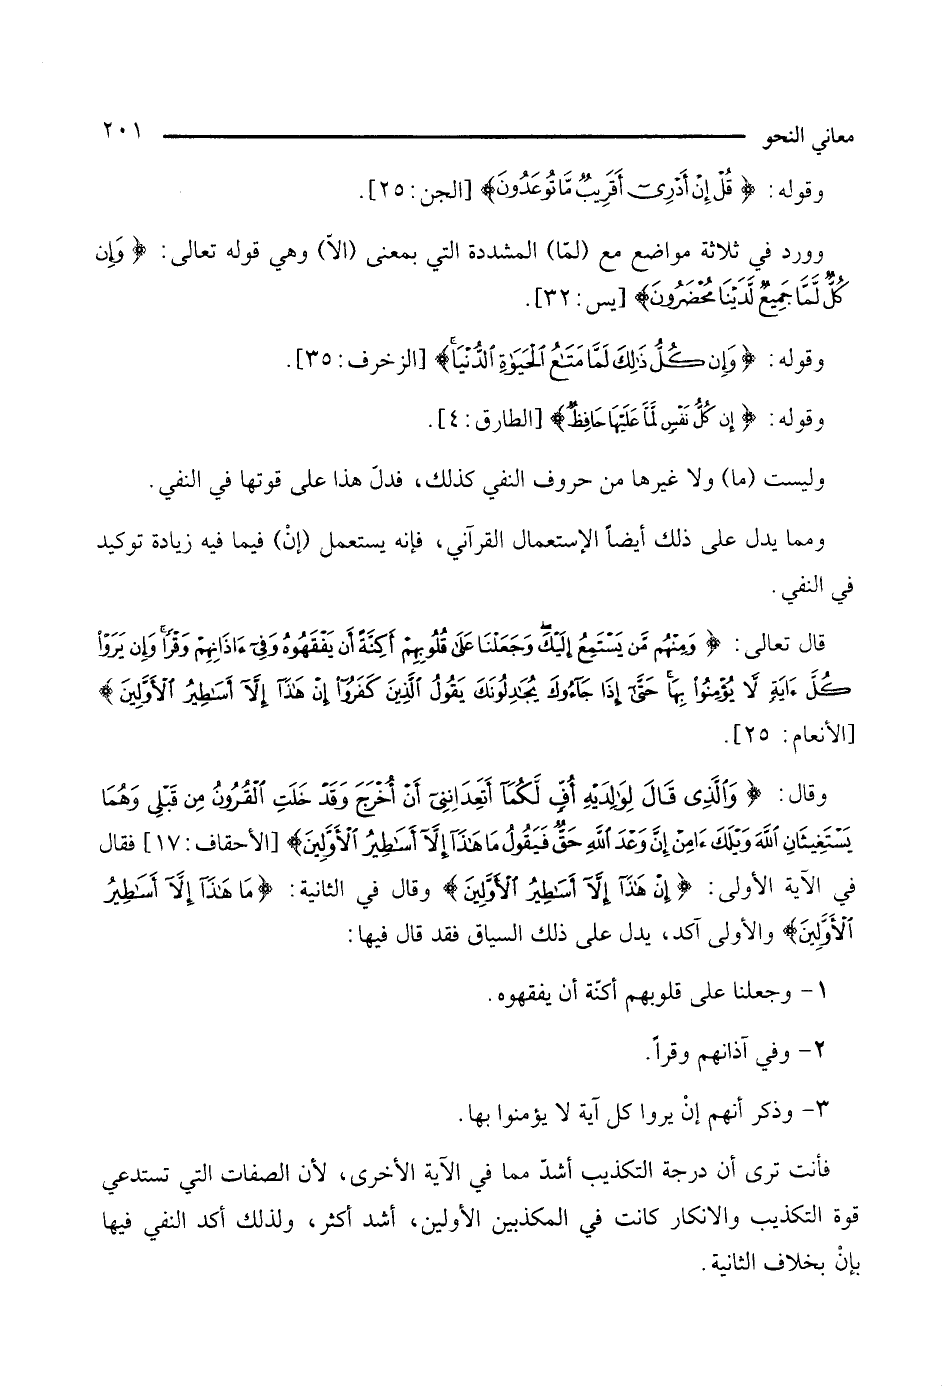 معاني النحو ٢٠١
وقوله: ﴿ قُلْ إِنْ أَدْرِىٓ أَقَرِيبٌ مَّا تُوعَدُونَ﴾ [الجن: ٢٥].
وورد في ثلاثة مواضع مع (لمّا) المشددة التي بمعنى (الاّ) وهي قوله تعالى: ﴿ وَإِن
كُلٌّ لَّمَّا جَمِيعٌ لَّدَيْنَا مُحْضَرُونَ﴾ [يس: ٣٢].
وقوله: ﴿ وَإِن كُلُّ ذَٰلِكَ لَمَّا مَتَٰعُ ٱلْحَيَوٰةِ ٱلدُّنْيَا ۚ﴾ [الزخرف: ٣٥].
وقوله: ﴿ إِن كُلُّ نَفْسٍ لَّمَّا عَلَيْهَا حَافِظٌ﴾ [الطارق: ٤].
وليست (ما) ولا غيرها من حروف النفي كذلك، فدلّ هذا على قوتها في النفي.
ومما يدل على ذلك أيضاً الإستعمال القرآني، فإنه يستعمل (إنْ) فيما فيه زيادة توكيد
في النفي.
قال تعالى: ﴿ وَمِنْهُم مَّن يَسْتَمِعُ إِلَيْكَ ۖ وَجَعَلْنَا عَلَىٰ قُلُوبِهِمْ أَكِنَّةً أَن يَفْقَهُوهُ وَفِىٓ ءَاذَانِهِمْ وَقْرًا ۚ وَإِن يَرَوْا۟
كُلَّ ءَايَةٍ لَّا يُؤْمِنُوا۟ بِهَا ۚ حَتَّىٰٓ إِذَا جَآءُوكَ يُجَٰدِلُونَكَ يَقُولُ ٱلَّذِينَ كَفَرُوٓا۟ إِنْ هَٰذَآ إِلَّآ أَسَٰطِيرُ ٱلْأَوَّلِينَ ﴾
[الأنعام: ٢٥].
وقال: ﴿ وَٱلَّذِى قَالَ لِوَٰلِدَيْهِ أُفٍّ لَّكُمَآ أَتَعِدَانِنِىٓ أَنْ أُخْرَجَ وَقَدْ خَلَتِ ٱلْقُرُونُ مِن قَبْلِى وَهُمَا
يَسْتَغِيثَانِ ٱللَّهَ وَيْلَكَ ءَامِنْ إِنَّ وَعْدَ ٱللَّهِ حَقٌّ فَيَقُولُ مَا هَٰذَآ إِلَّآ أَسَٰطِيرُ ٱلْأَوَّلِينَ﴾ [الأحقاف: ١٧] فقال
في الآية الأولى: ﴿ إِنْ هَٰذَآ إِلَّآ أَسَٰطِيرُ ٱلْأَوَّلِينَ﴾ وقال في الثانية: ﴿ مَا هَٰذَآ إِلَّآ أَسَٰطِيرُ
ٱلْأَوَّلِينَ﴾ والأولى آكد، يدل على ذلك السياق فقد قال فيها:
١- وجعلنا على قلوبهم أكنّة أن يفقهوه.
٢- وفي آذانهم وقراً.
٣- وذكر أنهم إنْ يروا كل آية لا يؤمنوا بها.
فأنت ترى أن درجة التكذيب أشدّ مما في الآية الأخرى، لأن الصفات التي تستدعي
قوة التكذيب والانكار كانت في المكذبين الأولين، أشد أكثر، ولذلك أكد النفي فيها
بإنْ بخلاف الثانية.